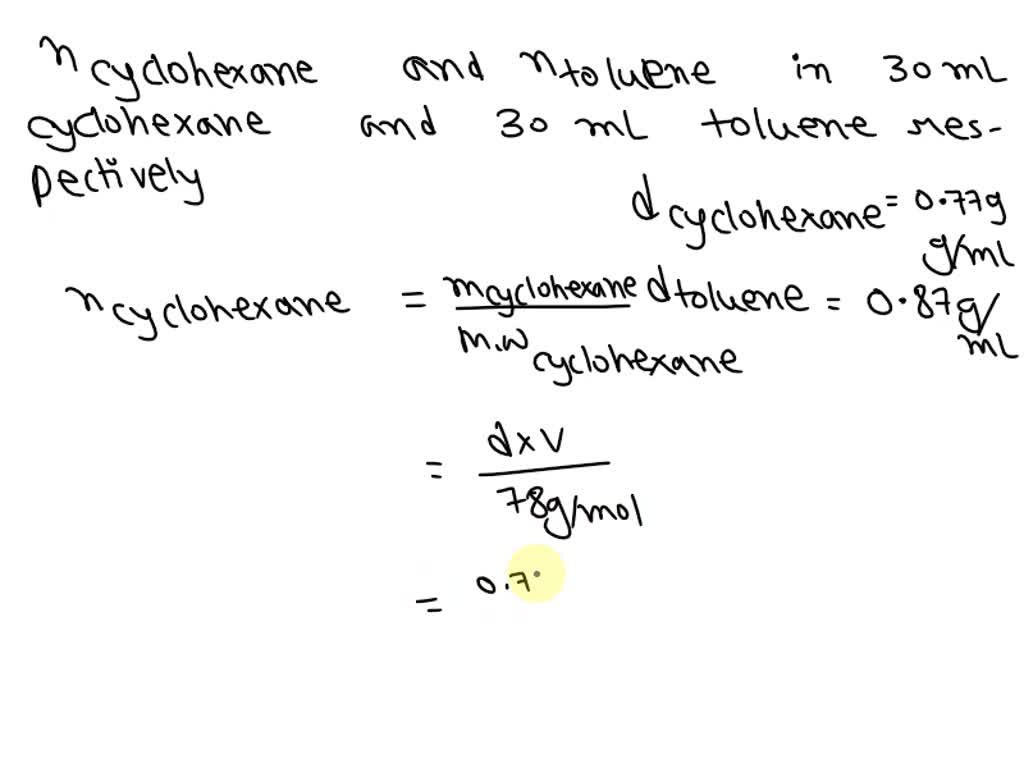 n cyclohexane and n toluene in 30 mL
cyclohexane and 30 mL toluene res-
pectively
d cyclohexane = 0.77g
g/mL
n cyclohexane = m cyclohexane / m.w cyclohexane
d toluene = 0.87g/mL
= d x V / 78g/mol
= 0.7